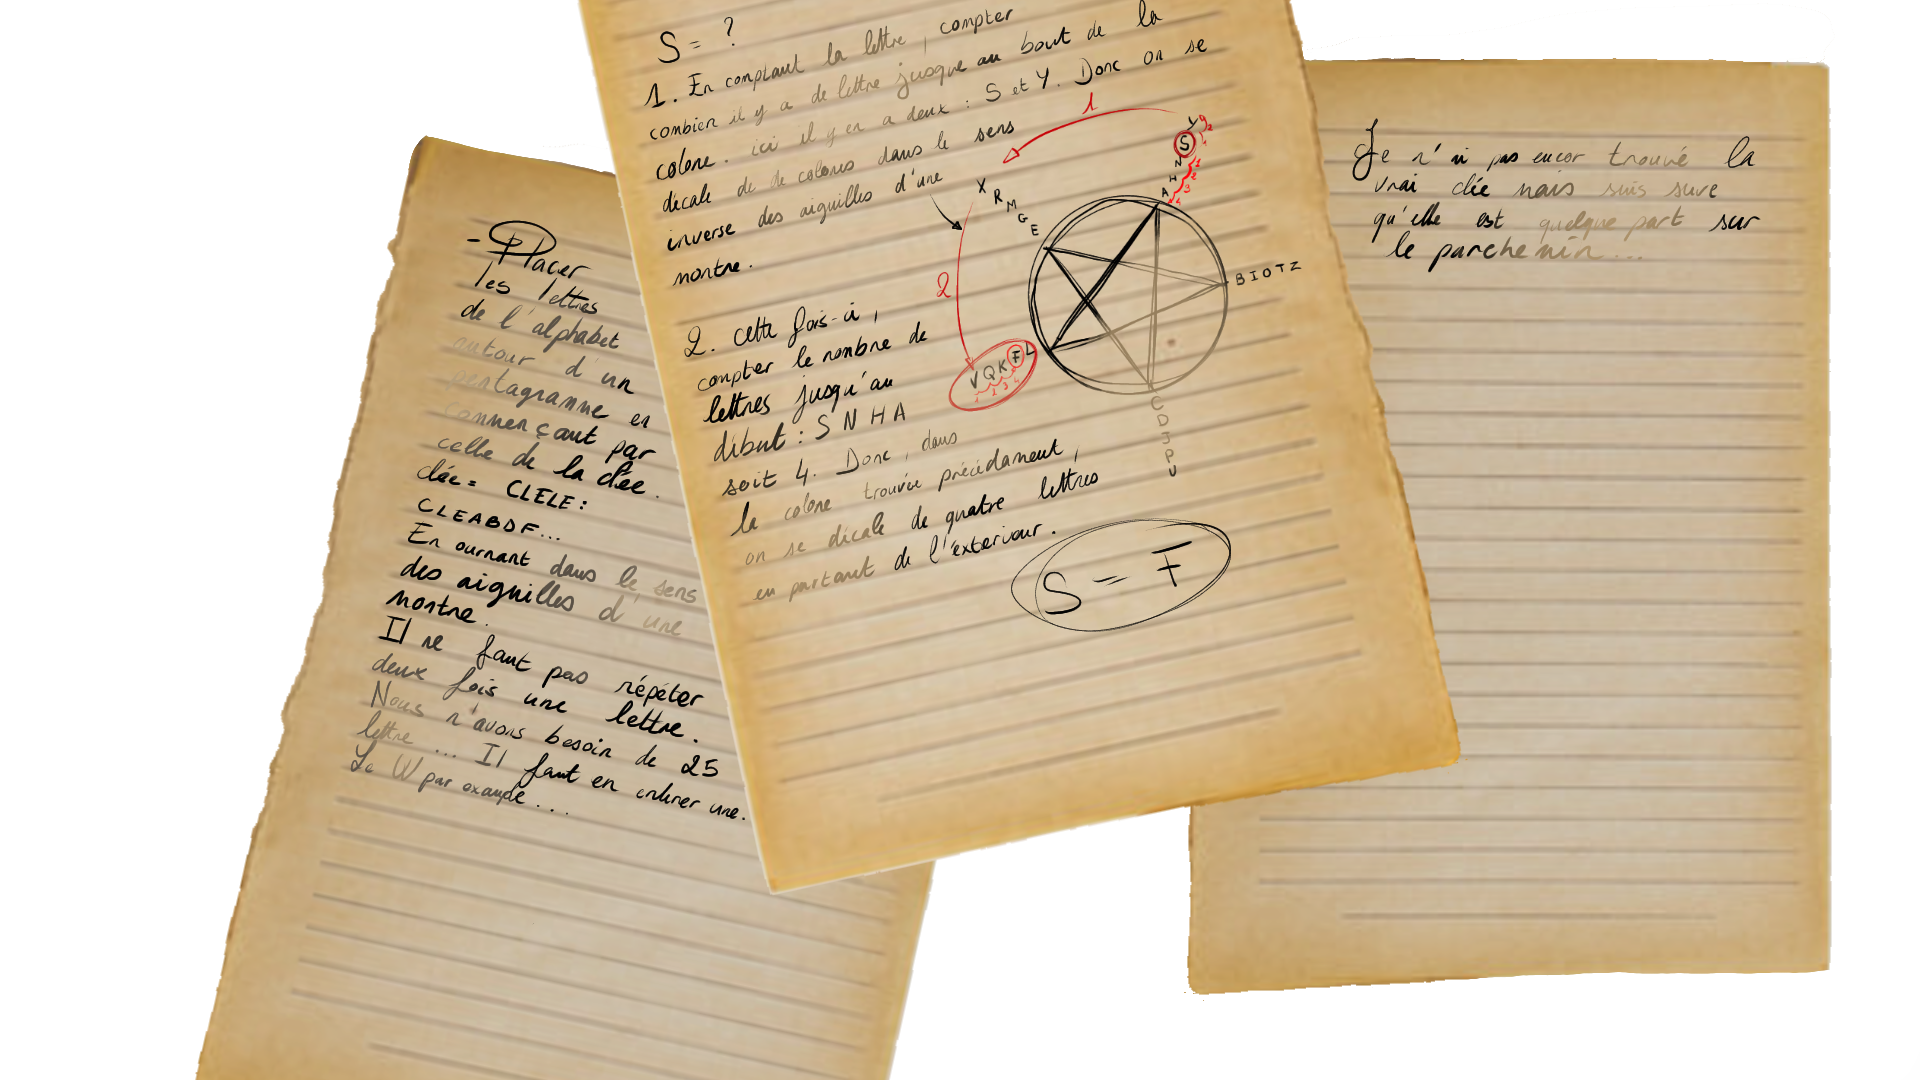 - Placer
les lettres
de l'alphabet
autour d'un
pentagramme en
commençant par
celle de la clée.
clée = CLELE :
CLEABDF...
En ournant dans le sens
des aiguilles d'une
montre.
Il ne faut pas répéter
deux fois une lettre.
Nous n'avons besoin de 25
lettre ... Il faut en enlever une.
Le W par example...
S = ?
1. En comptant la lettre, compter
combien il y a de lettre jusque au bout de la
colone. ici il y en a deux : S et Y. Donc on se
décale de de colones dans le sens
inverse des aiguilles d'une
montre.
2. cette fois-ci,
compter le nombre de
lettres jusqu'au
début : S N H A
soit 4. Donc, dans
la colone trouvée précédament,
on se décale de quatre lettres
en partant de l'exterieur.
1
2
Y
S
N
H
A
2
1
1
2
3
4
X
R
M
G
E
B I O T Z
V Q K F L
1 2 3 4
C
D
J
P
U
S = F
Je n'ai pas encor trouvé la
vrai clée mais suis sure
qu'elle est quelque part sur
le parchemin...